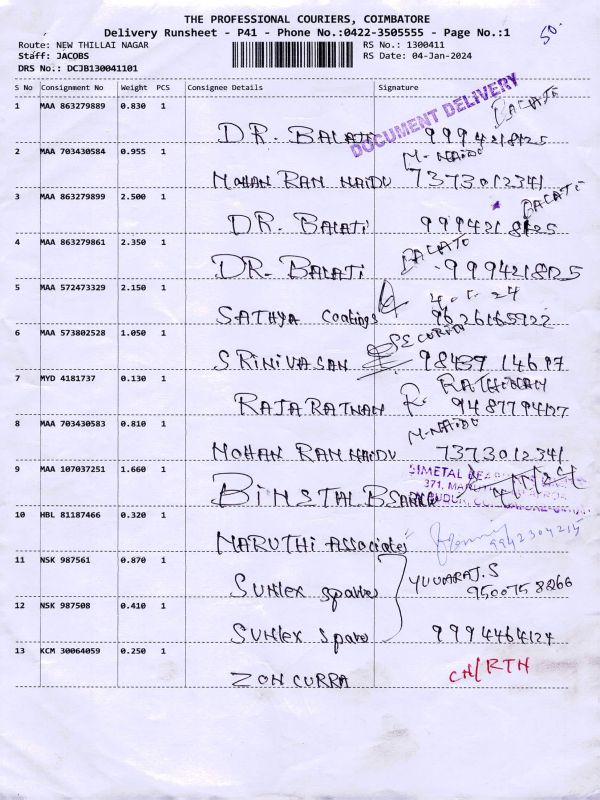 THE PROFESSIONAL COURIERS, COIMBATORE
50.
Delivery Runsheet - P41 - Phone No.:0422-3505555 - Page No.:1
Route: NEW THILLAI NAGAR RS No.: 1300411
Staff: JACOBS RS Date: 04-Jan-2024
DRS No.: DCJB130041101
S No Consignment No Weight PCS Consignee Details Signature
DOCUMENT DELIVERY
1 MAA 863279889 0.830 1
DR. BALATI 9994218125
2 MAA 703430584 0.955 1 M-NAIDU
MOHAN RAM NAIDU 7373012341
3 MAA 863279899 2.500 1
DR. BALATI 9994218125
4 MAA 863279861 2.350 1
DR. BALATI 9994218125
5 MAA 572473329 2.150 1
SATHYA coatings
6 MAA 573802528 1.050 1
SRINIVASAN
7 MYD 4181737 0.130 1
RAJA RATNAM
8 MAA 703430583 0.810 1 M-NAIDU
MOHAN RAM NAIDU 7373012341
9 MAA 107037251 1.660 1
371,
10 HBL 81187466 0.320 1
MARUTHI Associates 9942304215
11 NSK 987561 0.870 1 YUVARAJ.S
9500758266
12 NSK 987508 0.410 1
9994464124
13 KCM 30064059 0.250 1 CH/RTH
ZON CURRA